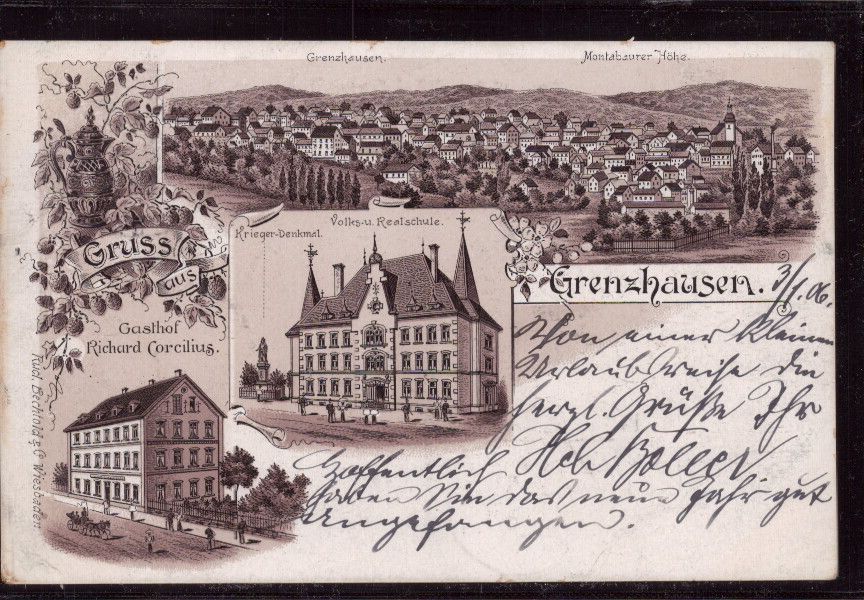 Grenzhausen.
Montabaurer Höhe.
Gruss
aus
Krieger-Denkmal.
Volks-u. Realschule.
Grenzhausen.
3/1.06.
Gasthof
Richard Corcilius.
Von einer kleinen
Urlaubsreise die
herzl. Grüße Ihr
Hoffentlich
haben Sie das neue Jahr gut
angefangen.
Rud. Bechtold & C° Wiesbaden